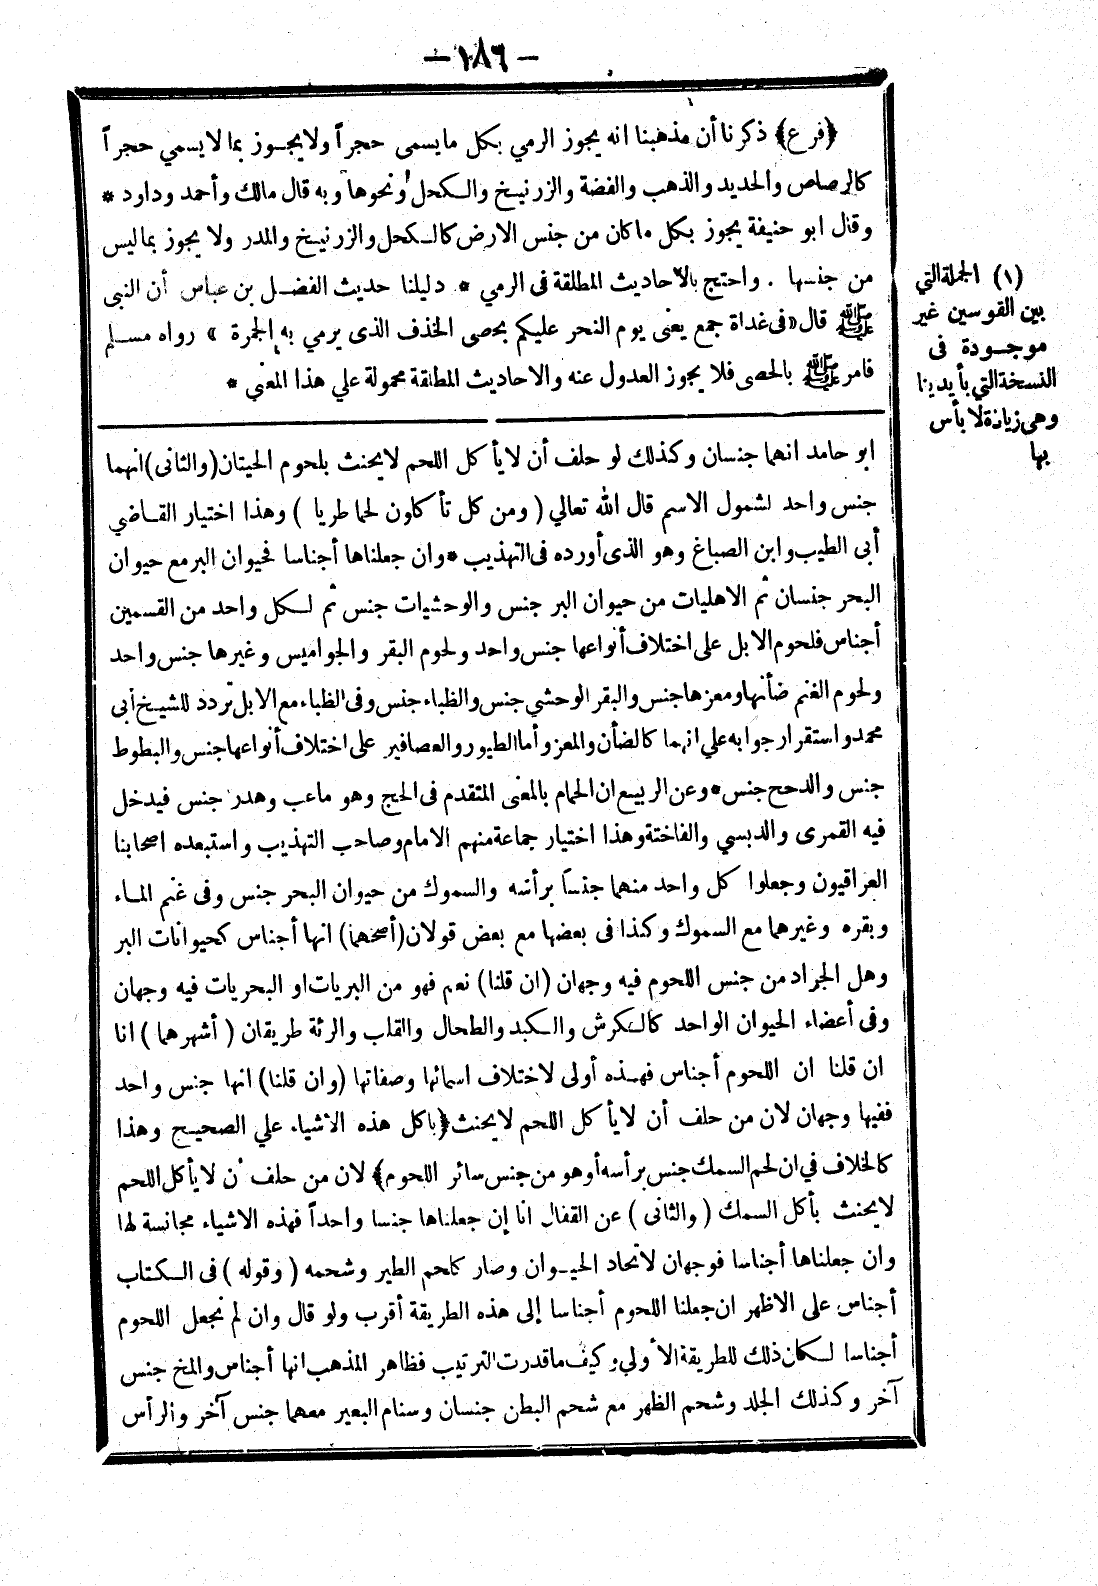 — ١٨٦ —
﴿فرع﴾ ذكرنا أن مذهبنا انه يجوز الرمي بكل ما يسمى حجراً ولا يجـوز بما لا يسمي حجراً
كالرصاص والحديد والذهب والفضة والزرنيـخ والـكحل ونحوها وبه قال مالك وأحمد وداود *
وقال ابو حنيفة يجوز بكل ما كان من جنس الارض كالـكحل والزرنيـخ والمدر ولا يجوز بما ليس
من جنسها . واحتج بالأحاديث المطلقة فى الرمي * دليلنا حديث الفضـل بن عباس أن النبى
ﷺ قال «فى غداة جمع يعنى يوم النحر عليكم بحصى الخذف الذى يرمي به الجمرة » رواه مسـلم
فامر ﷺ بالحصى فلا يجوز العدول عنه والاحاديث المطلقة محمولة علي هذا المعنى *
(١) الجملة التي
بين القوسين غير
موجـودة فى
النسخة التي بأيدينا
وهى زيادة لا بأس
بها
ابو حامد انهما جنسان وكذلك لو حلف أن لا يأكل اللحم لا يحنث بلحوم الحيتان (والثانى) انهما
جنس واحد لشمول الاسم قال الله تعالي ( ومن كل تأكلون لحما طريا ) وهذا اختيار القـاضي
أبى الطيب وابن الصباغ وهو الذى أورده فى التهذيب * وان جعلناها أجناسا فحيوان البر مع حيوان
البحر جنسان ثم الاهليات من حيوان البر جنس والوحشيات جنس ثم لـكل واحد من القسمين
أجناس فلحوم الابل على اختلاف أنواعها جنس واحد ولحوم البقر والجواميس وغيرها جنس واحد
ولحوم الغنم ضأنها ومعزها جنس والبقر الوحشي جنس والظباء جنس وفى الظباء مع الابل تردد للشيـخ أبى
محمد واستقرار جوابه علي انهما كالضأن والمعز وأما الطيور والعصافير على اختلاف أنواعها جنس والبطوط
جنس والدجج جنس * وعن الربيـع ان الحمام بالمعنى المتقدم فى الحج وهو ما عب وهدر جنس فيدخل
فيه القمرى والدبسي والفاختة وهذا اختيار جماعة منهم الامام وصاحب التهذيب واستبعده اصحابنا
العراقيون وجعلوا كل واحد منهما جنسا برأسه والسموك من حيوان البحر جنس وفى غنم المـاء
وبقره وغيرهما مع السموك وكذا فى بعضها مع بعض قولان (أصحهما) انها أجناس كحيوانات البر
وهل الجراد من جنس اللحوم فيه وجهان (ان قلنا) نعم فهو من البريات او البحريات فيه وجهان
وفى أعضاء الحيوان الواحد كالـكرش والـكبد والطحال والقلب والرئة طريقان ( أشهرهما ) انا
ان قلنا ان اللحوم أجناس فهـذه أولى لاختلاف اسمائها وصفاتها (وان قلنا) انها جنس واحد
ففيها وجهان لان من حلف أن لا يأكل اللحم لا يحنث ﴿باكل هذه الاشياء علي الصحيـح وهذا
كالخلاف في ان لحم السمك جنس برأسه أوهو من جنس سائر اللحوم﴾ لان من حلف أن لا يأكل اللحم
لا يحنث بأكل السمك ( والثانى ) عن القفال انا إن جعلناها جنسا واحداً فهذه الاشياء مجانسة لها
وان جعلناها أجناسا فوجهان لاتحاد الحيـوان وصار كلحم الطير وشحمه ( وقوله ) فى الـكتاب
أجناس على الاظهر ان جعلنا اللحوم أجناسا إلى هذه الطريقة أقرب ولو قال وان لم نجعل اللحوم
أجناسا لـكان ذلك للطريقة الأولي وكيف ما قدرت الترتيب فظاهر المذهب انها أجناس والمخ جنس
آخر وكذلك الجلد وشحم الظهر مع شحم البطن جنسان وسنام البعير معهما جنس آخر والرأس